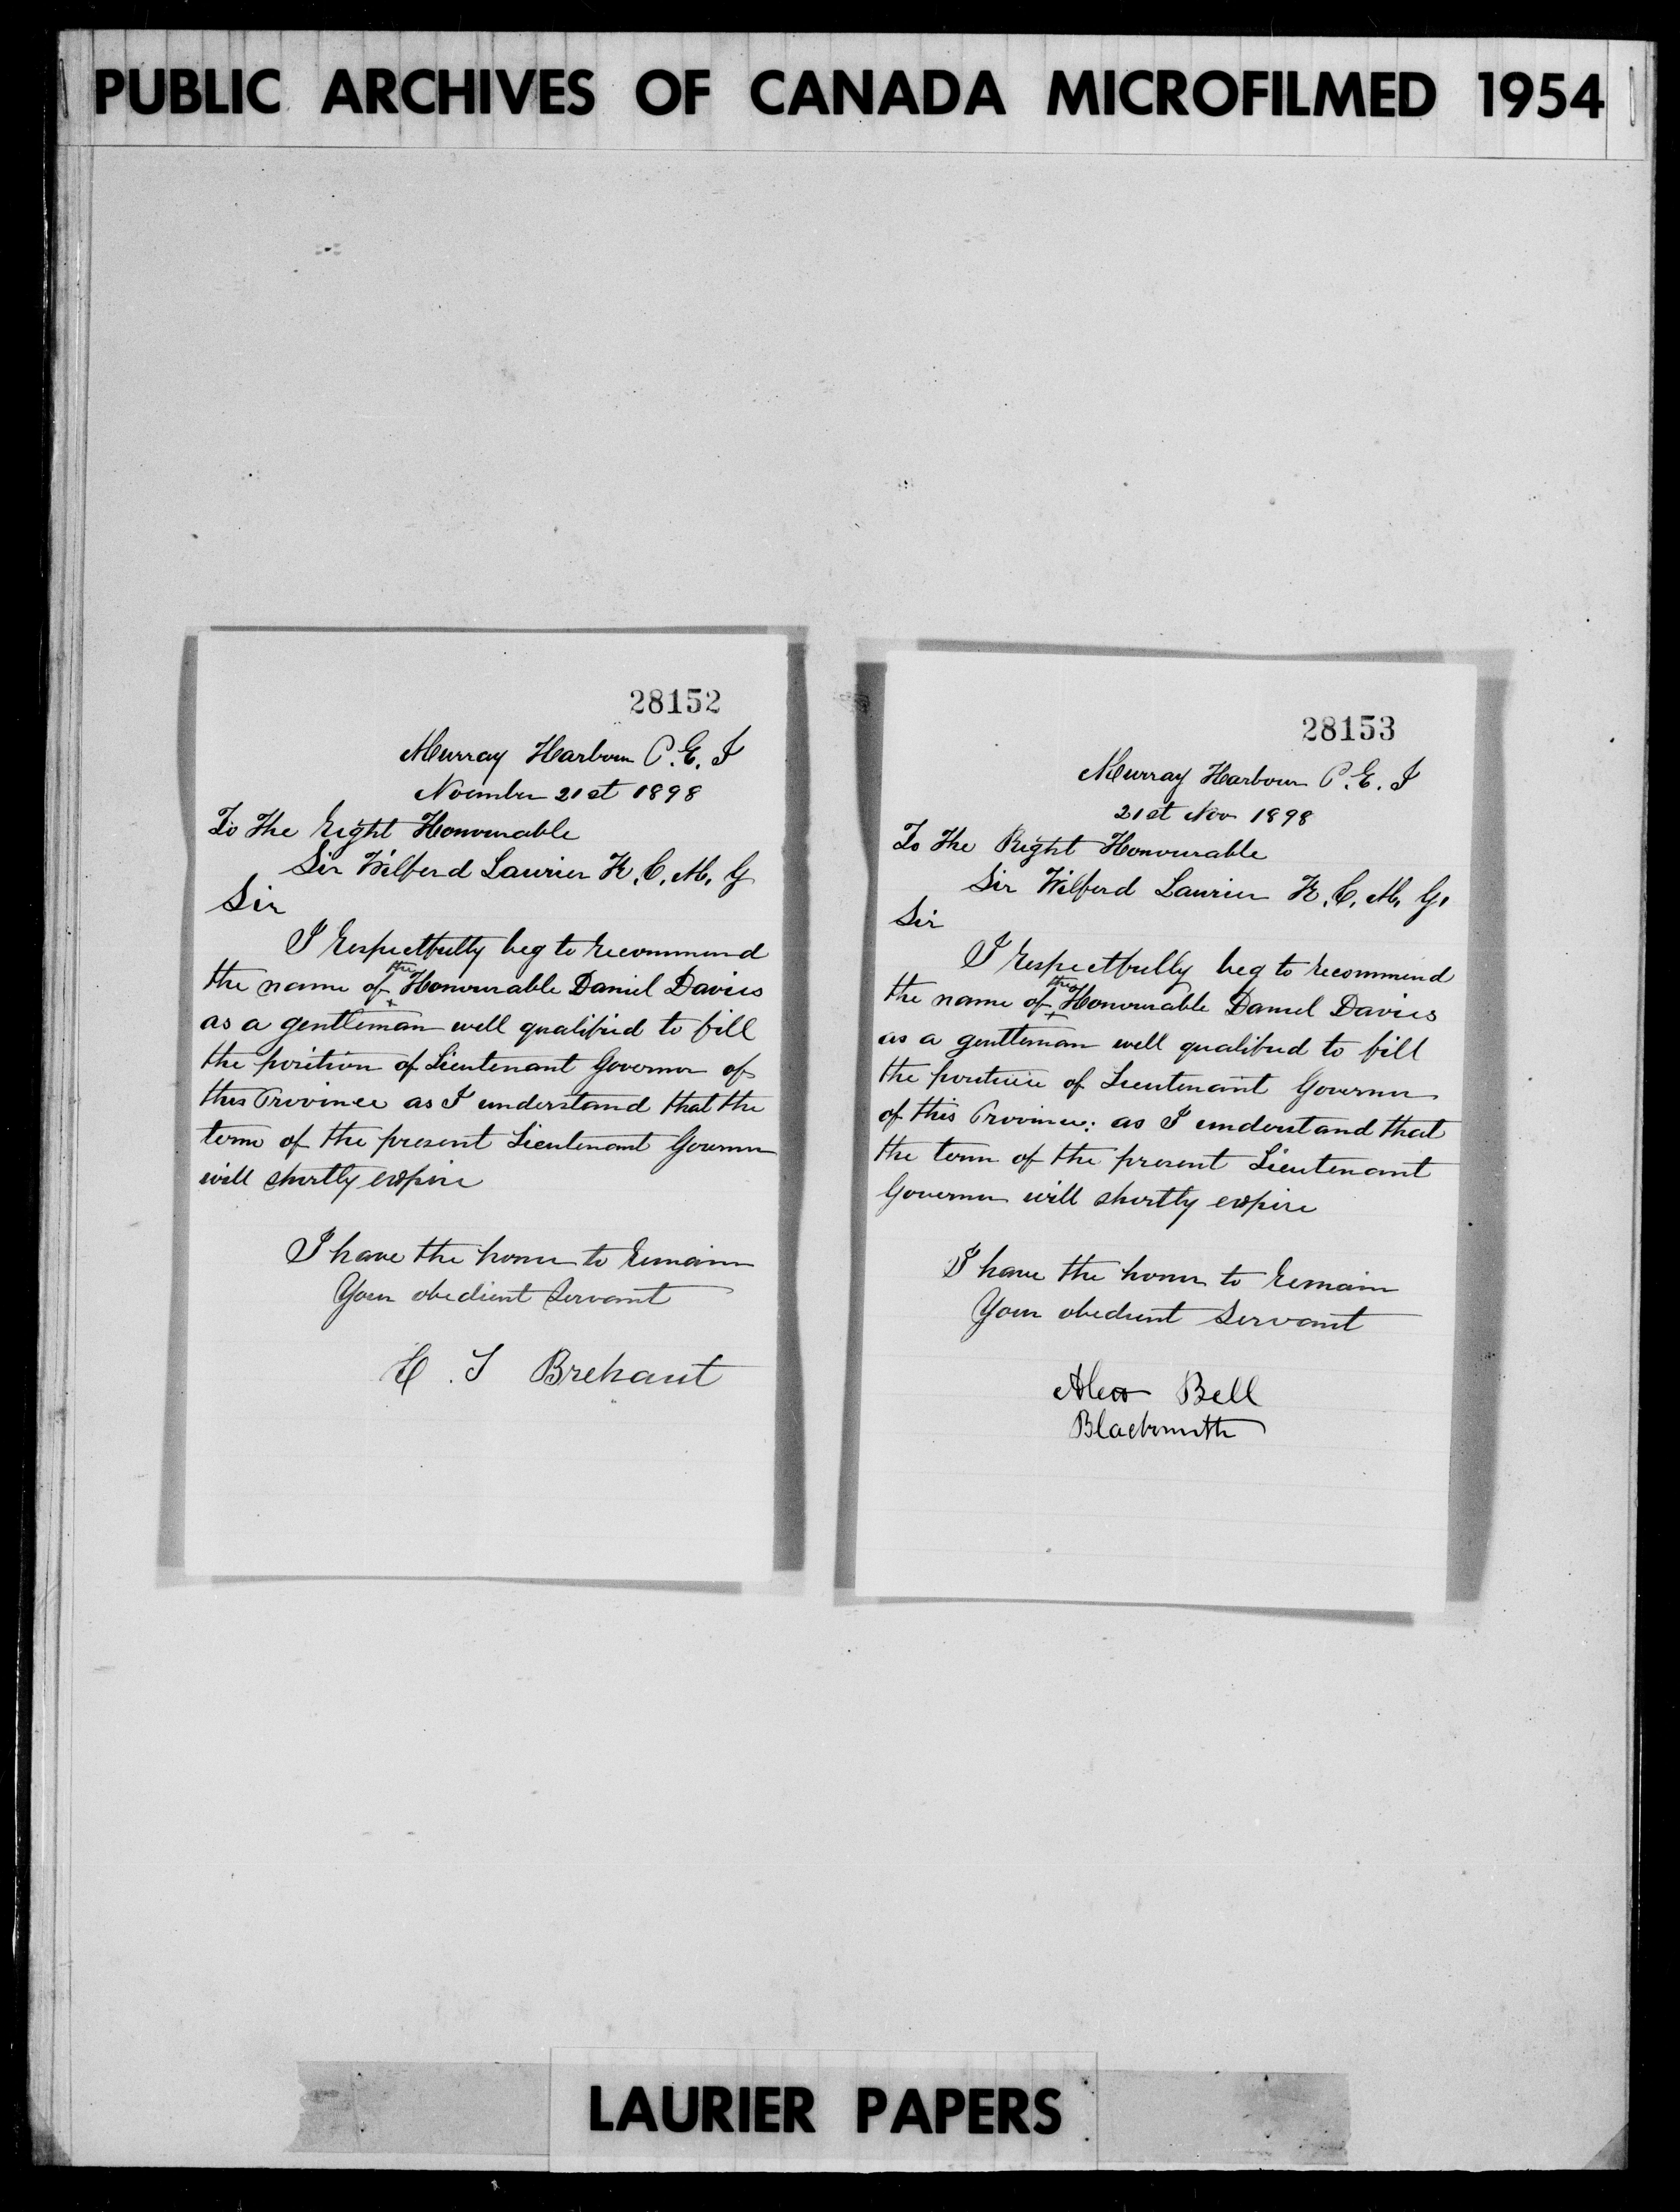 PUBLIC ARCHIVES OF CANADA MICROFILMED 1954
28152
Murray Harbour P.E.I
Noember 21st 1898
To the Right Honourable
Sir Wilferd Laurier K.C.M.G
Sir
I respectfully beg to recommend
the name of the Honourable Daniel Davies
as a gentleman well qualified to fill
the position of Lieutenant Governor of
this Province as I understand that the
term of the present Lieutenant Governor
will shortly expire
I have the honor to remain
Your obedient Servant
H. S Brehaut
28153
Murray Harbour P.E.I
21st Nov 1898
To the Right Honourable
Sir Wilferd Laurier K.C.M.G.
Sir
I respectfully beg to recommend
the name of the Honourable Daniel Davies
as a gentleman well qualified to fill
the position of Lieutenant Governor
of this Province: as I understand that
the term of the present Lieutenant
Governor will shortly expire
I have the honor to remain
Your obedient Servant
Alex Bell
Blacksmith
LAURIER PAPERS